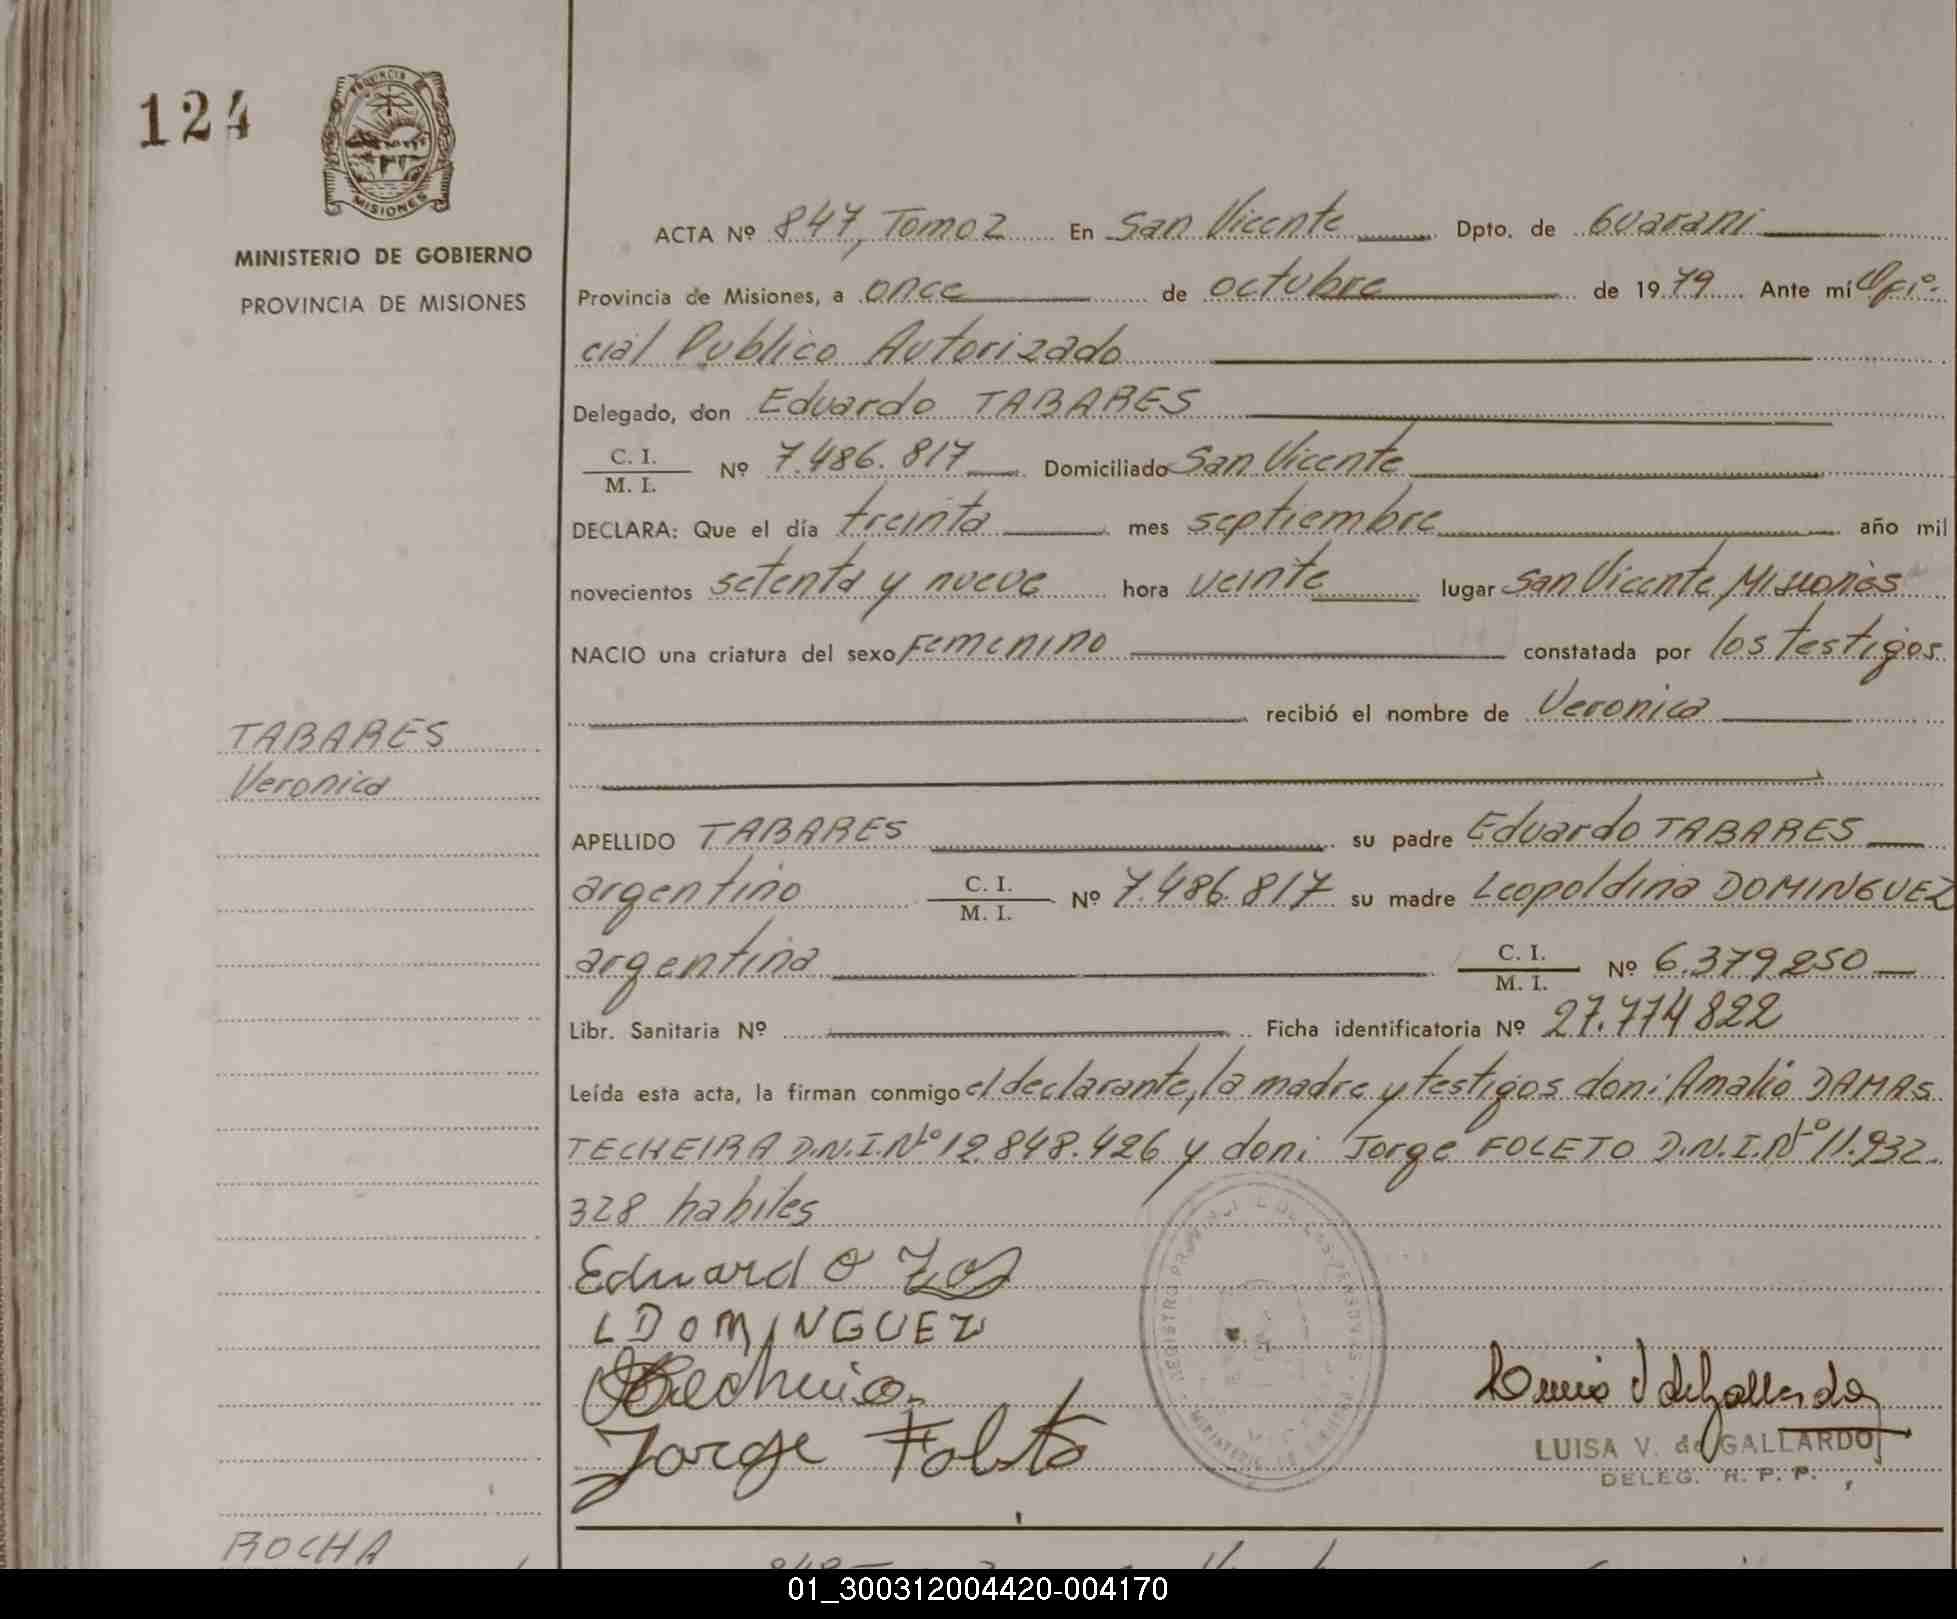 124
PROVINCIA DE
MISIONES
MINISTERIO DE GOBIERNO
PROVINCIA DE MISIONES
ACTA Nº 847, Tomo 2 En San Vicente Dpto. de Guarani
Provincia de Misiones, a once de octubre de 1979 Ante mí Ofi-
cial Publico Autorizado
Delegado, don Eduardo TABARES
C. I.
M. I. Nº 7.486.817 Domiciliado San Vicente
DECLARA: Que el día treinta mes septiembre año mil
novecientos setenta y nueve hora veinte lugar San Vicente, Misiones
NACIO una criatura del sexo Femenino constatada por los testigos
recibió el nombre de Veronica
TABARES
Veronica
APELLIDO TABARES su padre Eduardo TABARES
argentino C. I. M. I. Nº 7.486.817 su madre Leopoldina DOMINGUEZ
argentina C. I. M. I. Nº 6.379.250
Libr. Sanitaria Nº Ficha identificatoria Nº 27.774822
Leída esta acta, la firman conmigo el declarante, la madre y testigos don: Amalio DAMAS
TECHEIRA D.N.I.Nº 12.848.426 y don: Jorge FOLETO D.N.I.Nº 11.932.
328 habiles
Eduardo
L DOMINGUEZ
Jorge Foleto
REGISTRO PROVINCIAL DE LAS PERSONAS
LUISA V. de GALLARDO
DELEG. R. P. P.
ROCHA
01_300312004420-004170